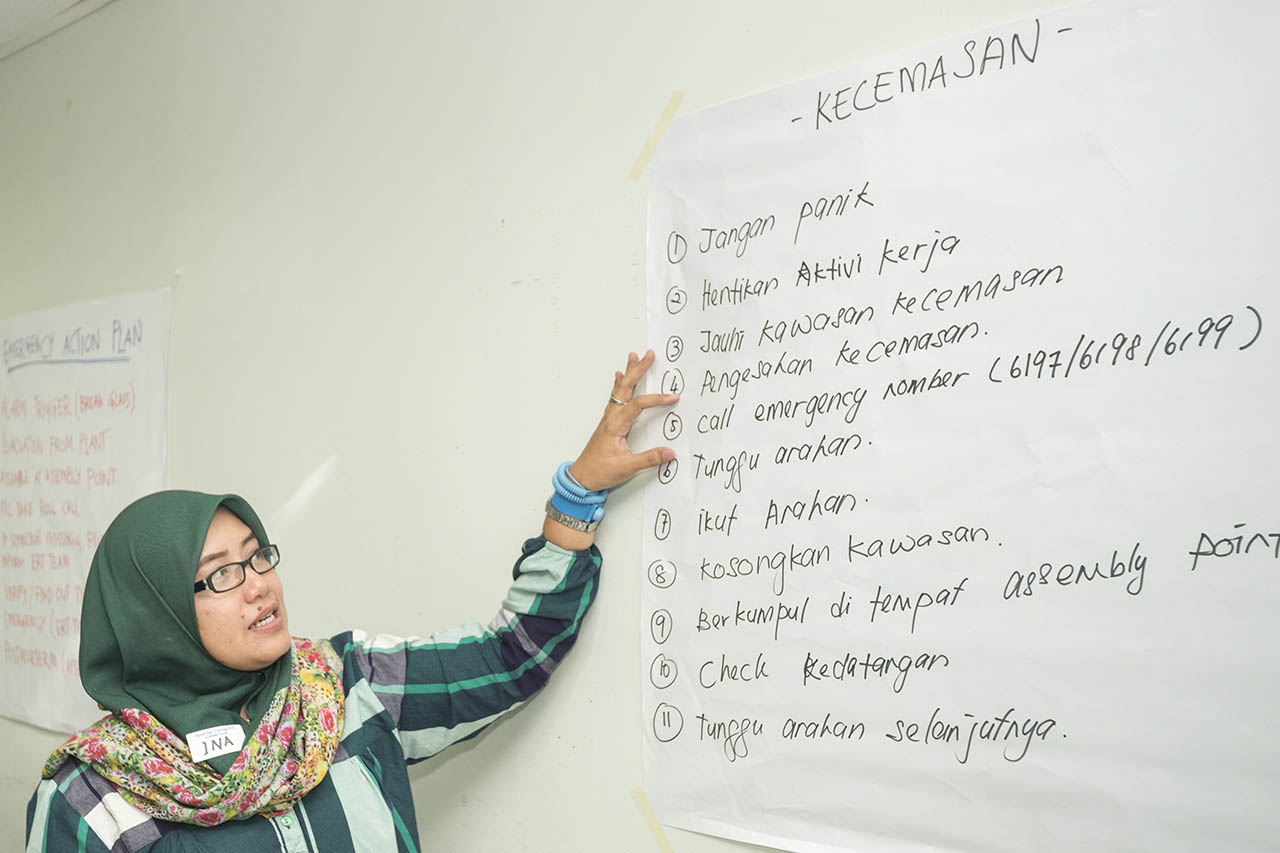 EMERGENCY ACTION PLAN
ALARM TRIGGER (BREAK GLASS)
EVACUATION FROM PLANT
ASSEMBLE @ ASSEMBLY POINT
PIC TAKE ROLL CALL
IF SOMEONE MISSING,
INFORM ERT TEAM
VERIFY / FIND OUT
EMERGENCY (ERT
POSTMORTEM
INA
- KECEMASAN -
1 Jangan panik
2 Hentikan Aktivi kerja
3 Jauhi kawasan kecemasan
4 Pengesahan kecemasan.
5 Call emergency nomber (6197/6198/6199)
6 Tunggu arahan.
7 ikut Arahan.
8 kosongkan kawasan.
9 Berkumpul di tempat assembly point
10 Check kedatangan
11 Tunggu arahan selanjutnya.